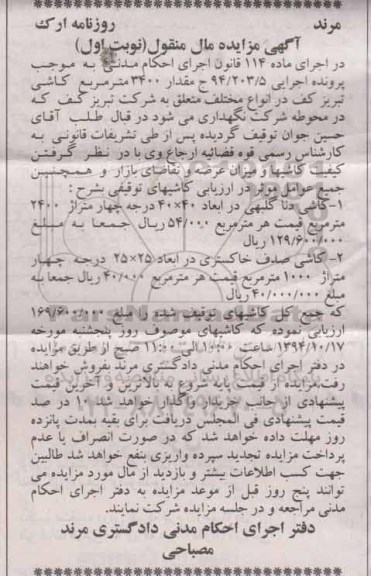 مرند روزنامه ارک
آگهی مزایده مال منقول(نوبت اول)
در اجرای ماده ۱۱۴ قانون اجرای احکام مدنی به موجب
پرونده اجرایی ۹۴/۲۰۳/۵ ج مقدار ۳۴۰۰ مترمربع کاشی
تبریز کف در انواع مختلف متعلق به شرکت تبریز کف که
در محوطه شرکت نگهداری می شود در قبال طلب آقای
حسین جوان توقیف گردیده پس از طی تشریفات قانونی به
کارشناس رسمی قوه قضائیه ارجاع وی با در نظر گرفتن
کیفیت کاشیها و میزان عرضه و تقاضای بازار و همچنین
جمیع عوامل موثر در ارزیابی کاشیهای توقیفی بشرح :
۱-کاشی دنا گلبهی در ابعاد ۴۰×۴۰ درجه چهار متراژ ۲۴۰۰
مترمربع قیمت هر مترمربع ۵۴/۰۰۰ ریال جمعا به مبلغ
۱۲۹/۶۰۰/۰۰۰ ریال
۲-کاشی صدف خاکستری در ابعاد ۲۵×۲۵ درجه چهار
متراژ ۱۰۰۰ مترمربع قیمت هر مترمربع ۴۰/۰۰۰ ریال جمعا به
مبلغ ۴۰/۰۰۰/۰۰۰ ریال
که جمع کل کاشیهای توقیف شده را مبلغ ۱۶۹/۶۰۰/۰۰۰
ارزیابی نموده که کاشیهای موصوف روز پنجشنبه مورخه
۱۳۹۴/۱۰/۱۷ ساعت ۱۰:۰۰ الی ۱۱:۰۰ صبح از طریق مزایده
در دفتر اجرای احکام مدنی دادگستری مرند بفروش خواهند
رفت.مزایده از قیمت پایه شروع به بالاترین و آخرین قیمت
پیشنهادی از جانب خریدار واگذار خواهد شد ۱۰ در صد
قیمت پیشنهادی فی المجلس دریافت برای بقیه بمدت پانزده
روز مهلت داده خواهد شد که در صورت انصراف یا عدم
پرداخت مزایده تجدید سپرده واریزی بنفع خواهد شد طالبین
جهت کسب اطلاعات بیشتر و بازدید از مال مورد مزایده می
توانند پنج روز قبل از موعد مزایده به دفتر اجرای احکام
مدنی مراجعه و در جلسه مزایده شرکت نمایند.
دفتر اجرای احکام مدنی دادگستری مرند
مصباحی